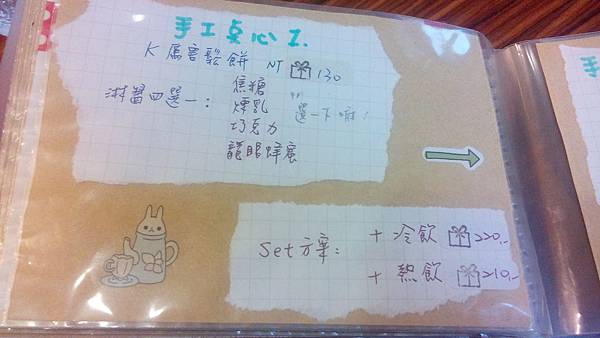 手工点心 1.
K厲害鬆餅 NT 130
淋醬四選一: 焦糖
煉乳
巧克力
龍眼蜂蜜
選一下嘛!
Set方案: + 冷飲 220.-
+ 熱飲 210.-